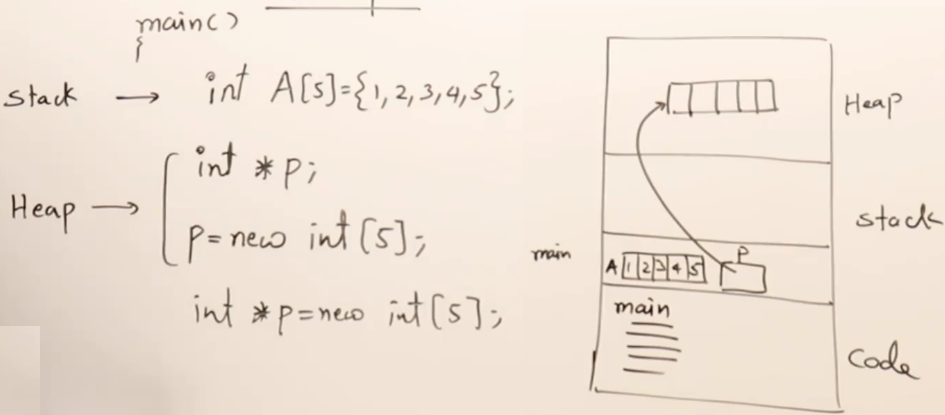 main()
{
Stack → int A[5]={1,2,3,4,5};
Heap → int *p;
p=new int[5];
int *p=new int[5];
Heap
stack
main
A 1 2 3 4 5
P
main
Code